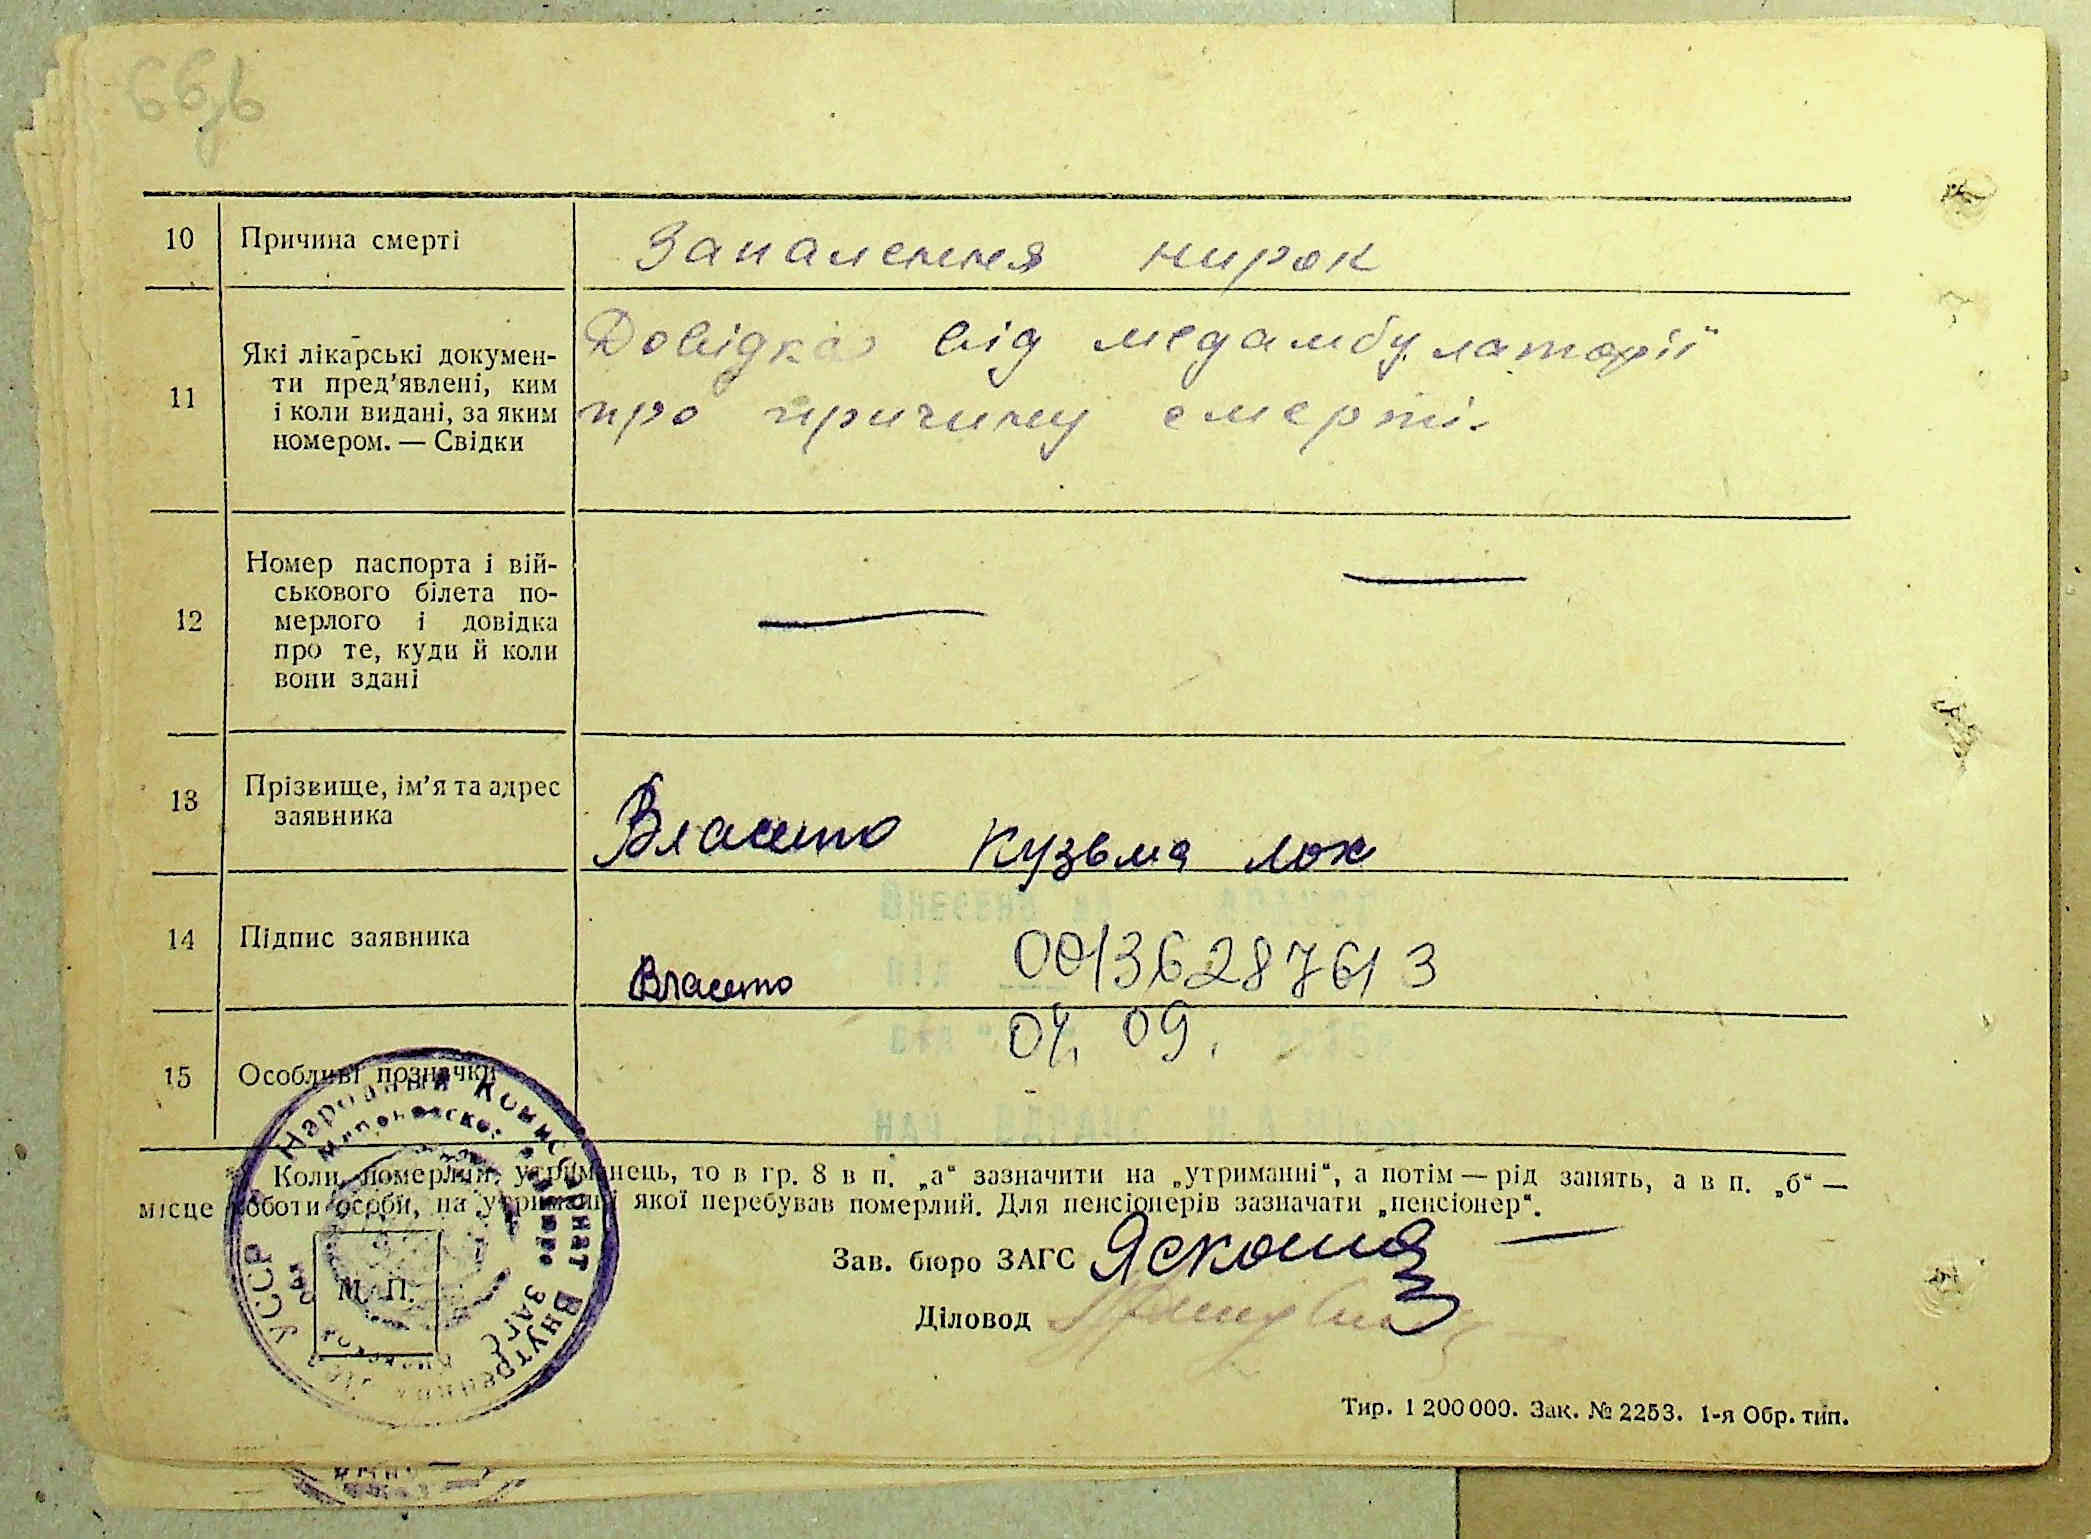 10 Причина смерті Запалення нирок
11 Які лікарські докумен-
ти пред'явлені, ким
і коли видані, за яким
номером. — Свідки
Довідка від медамбулаторії
про причину смерті.
12 Номер паспорта і вій-
ськового білета по-
мерлого і довідка
про те, куди й коли
вони здані
13 Прізвище, ім'я та адрес
заявника
Кузьма
14 Підпис заявника
00136287613
04. 09.
15 Особливі позначки
Народный Комиссариат Внутренних УССР
Бюро ЗАГС
Коли померлий, утриманець, то в гр. 8 в п. „а“ зазначити на „утриманні“, а потім — рід занять, а в п. „б“ —
місце роботи особи, на утриманні якої перебував померлий. Для пенсіонерів зазначати „пенсіонер“.
М. П.
Зав. бюро ЗАГС
Діловод
Тир. 1 200 000. Зак. № 2253. 1-я Обр. тип.